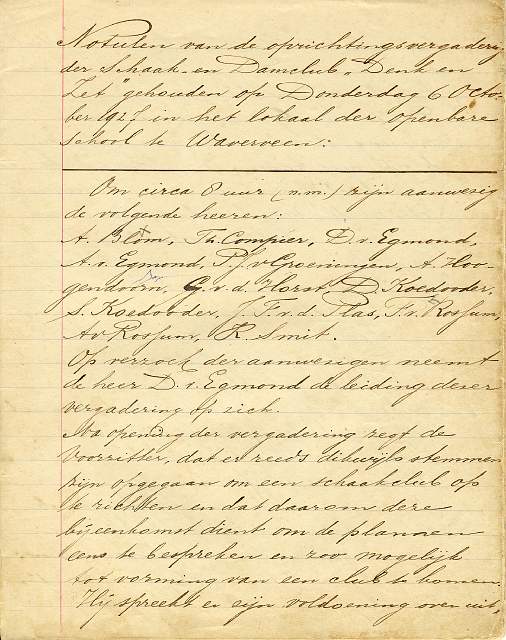 Notulen van de oprichtingsvergadering
der Schaak- en Damclub "Denk en
Zet" gehouden op Donderdag 6 Octo-
ber 1927 in het lokaal der openbare
school te Waverveen:
Om circa 8 uur (n.m.) zijn aanwezig
de volgende heeren:
A. Blom, Th. Compier, D. v. Egmond,
A. v. Egmond, P. J. v Groeningen, A. Hoo-
gendoorn, G. v. d. Horst, D. Koedooder,
S. Koedooder, J. F. v. d. Plas, F. v. Rossum,
A v Rossum, K. Smit.
Op verzoek der aanwezigen neemt
de heer D. v. Egmond de leiding dezer
vergadering op zich.
Na opening der vergadering zegt de
Voorzitter, dat er reeds dikwijls stemmen
zijn opgegaan om een schaakclub op
te richten en dat daarom deze
bijeenkomst dient om de plannen
eens te bespreken en zoo mogelijk
tot vorming van een club te komen.
Hij spreekt er zijn voldoening over uit,